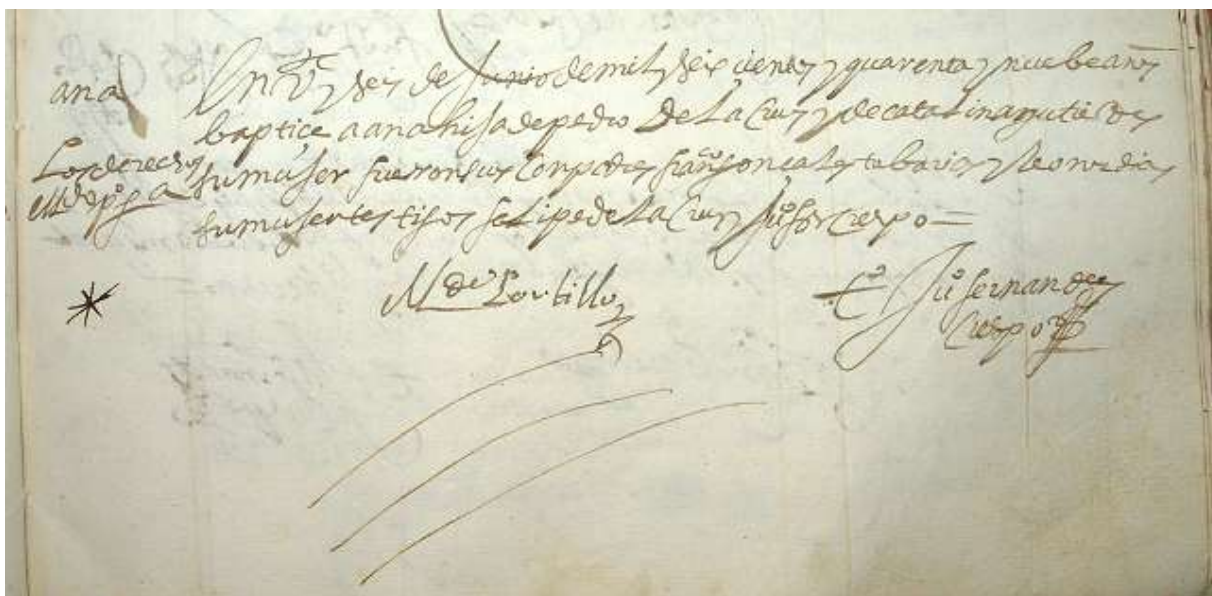 ana
En Vte y seis de Junio de mil y seis cientos y quarenta y nuebe años
baptice a ana hija de pedro De La Cruz y de catalina gutierres
Los derechos
su mujer fueron sus Conpadres franco gonçales tabares y leonor dias
su mujer testigos felipe de La Cruz y Juo for Crespo =
M de Portillo
Juo fernandez
Crespo